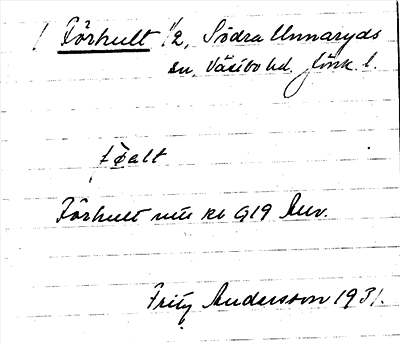 Förhult 1/2, Södra Unnaryds
sn, Västbo hd. Jönk. l.
Förhult 1/2 kr 919 Anv.
Fritz Andersson 1931.